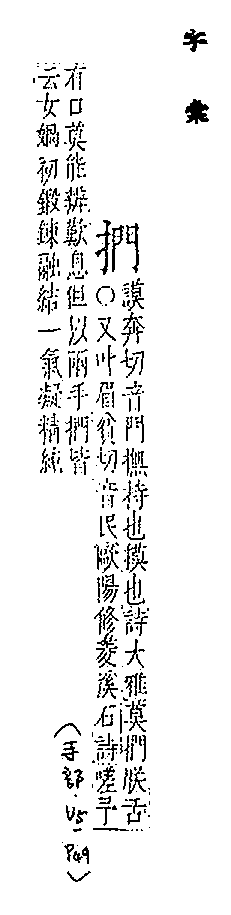 字彙
捫
謨奔切音門撫持也摸也詩大雅莫捫朕舌
〇又叶眉貧切音民歐陽修菱溪石詩嗟予
有口莫能辨歎息但以兩手捫皆
云女媧初鍛鍊融結一氣凝精純
(手部·V5-P49)